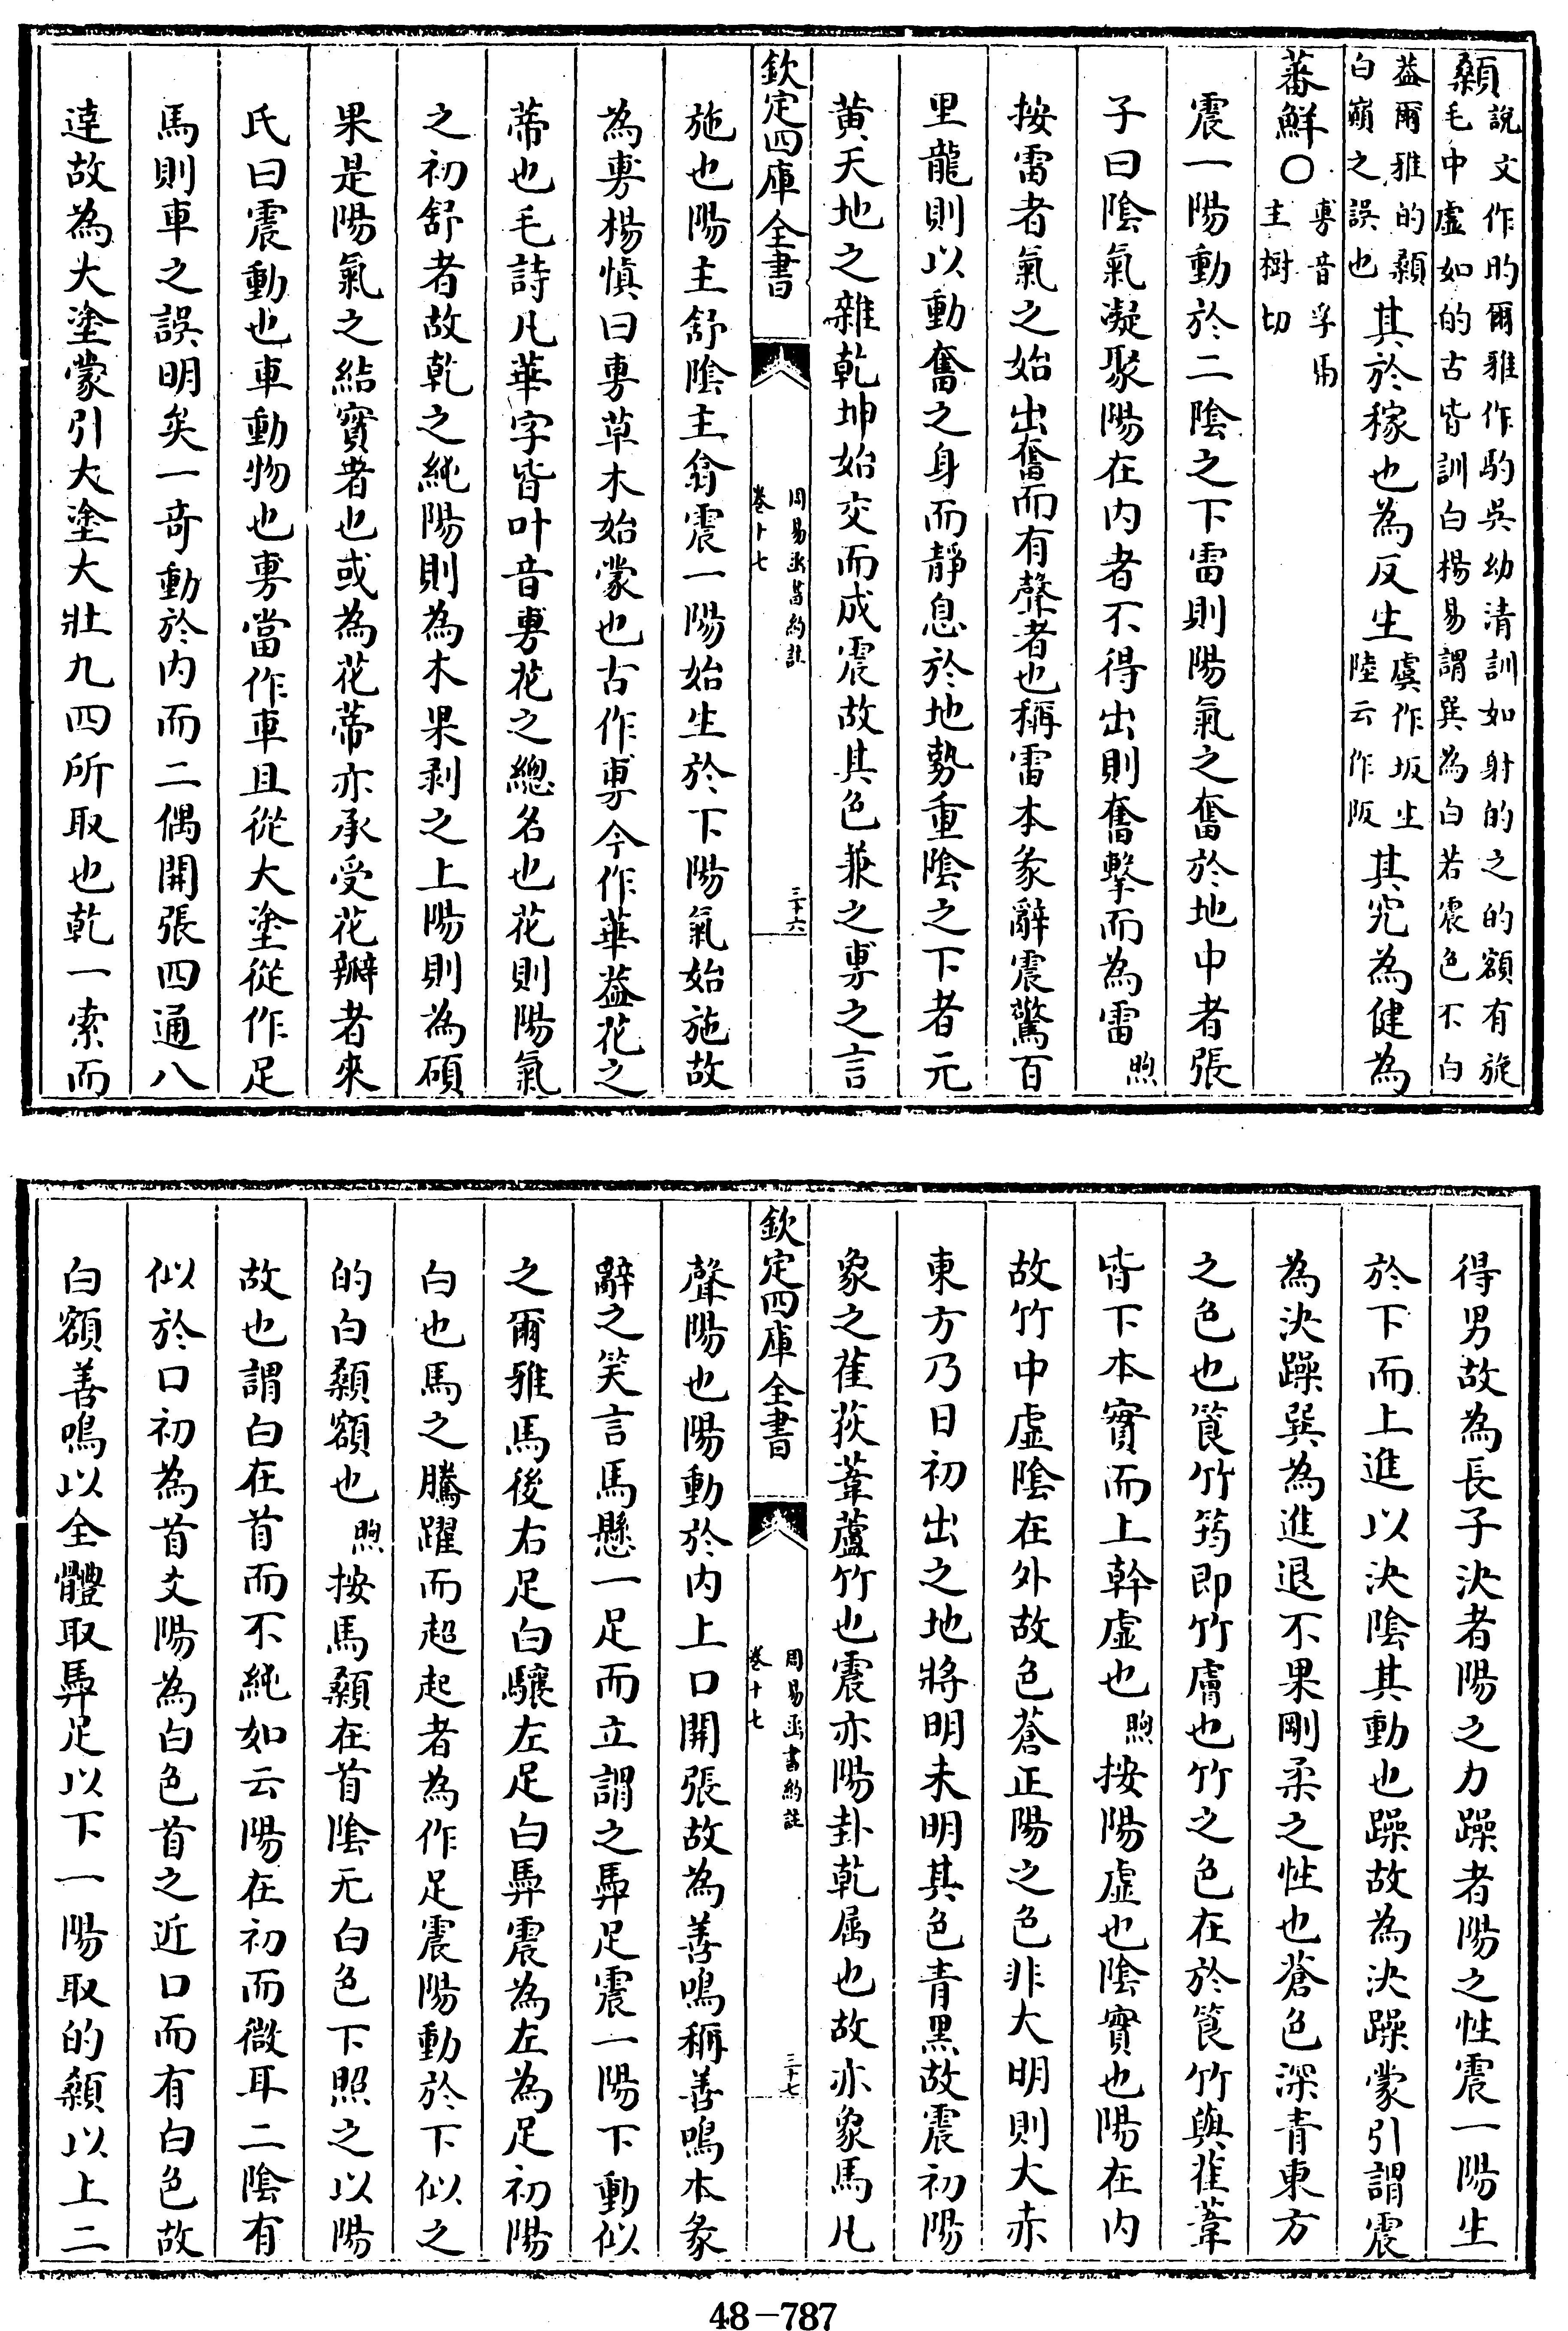 顙說文作旳爾雅作馰吳幼清訓如射的之的額有旋
毛中虛如的古皆訓白楊易謂巽為白若震色不白
葢爾雅的顙
白巔之誤也其於稼也為反生虞作坂生
陸云作阪其究為健為
蕃鮮○旉音孚馵
主樹切
震一陽動於二陰之下雷則陽氣之奮於地中者張
子曰陰氣凝聚陽在内者不得出則奮擊而為雷煦
按雷者氣之始出奮而有聲者也稱雷本彖辭震驚百
里龍則以動奮之身而靜息於地勢重陰之下者元
黄天地之雜乾坤始交而成震故其色兼之旉之言
欽定四庫全書
周易函書約註
卷十七
三十六
施也陽主舒陰主翕震一陽始生於下陽氣始施故
為旉楊慎曰旉草木始蒙也古作旉今作華葢花之
蒂也毛詩凡華字皆叶音旉花之總名也花則陽氣
之初舒者故乾之純陽則為木果剥之上陽則為碩
果是陽氣之結實者也或為花蒂亦承受花瓣者來
氏曰震動也車動物也旉當作車且從大塗從作足
馬則車之誤明矣一竒動於内而二偶開張四通八
達故為大塗蒙引大塗大壯九四所取也乾一索而
得男故為長子決者陽之力躁者陽之性震一陽生
於下而上進以決陰其動也躁故為決躁蒙引謂震
為決躁巽為進退不果剛柔之性也蒼色深青東方
之色也筤竹筠即竹膚也竹之色在於筤竹與萑葦
皆下本實而上幹虛也煦按陽虛也陰實也陽在内
故竹中虛陰在外故色蒼正陽之色非大明則大赤
東方乃日初出之地將明未明其色青黑故震初陽
象之萑荻葦蘆竹也震亦陽卦乾屬也故亦象馬凡
欽定四庫全書
周易函書約註
卷十七
三十七
聲陽也陽動於内上口開張故為善鳴稱善鳴本彖
辭之笑言馬懸一足而立謂之馵足震一陽下動似
之爾雅馬後右足白驤左足白馵震為左為足初陽
白也馬之騰躍而超起者為作足震陽動於下似之
的白顙額也煦按馬顙在首陰无白色下照之以陽
故也謂白在首而不純如云陽在初而微耳二陰有
似於口初為首爻陽為白色首之近口而有白色故
白額善鳴以全體取馵足以下一陽取的顙以上二
48-787